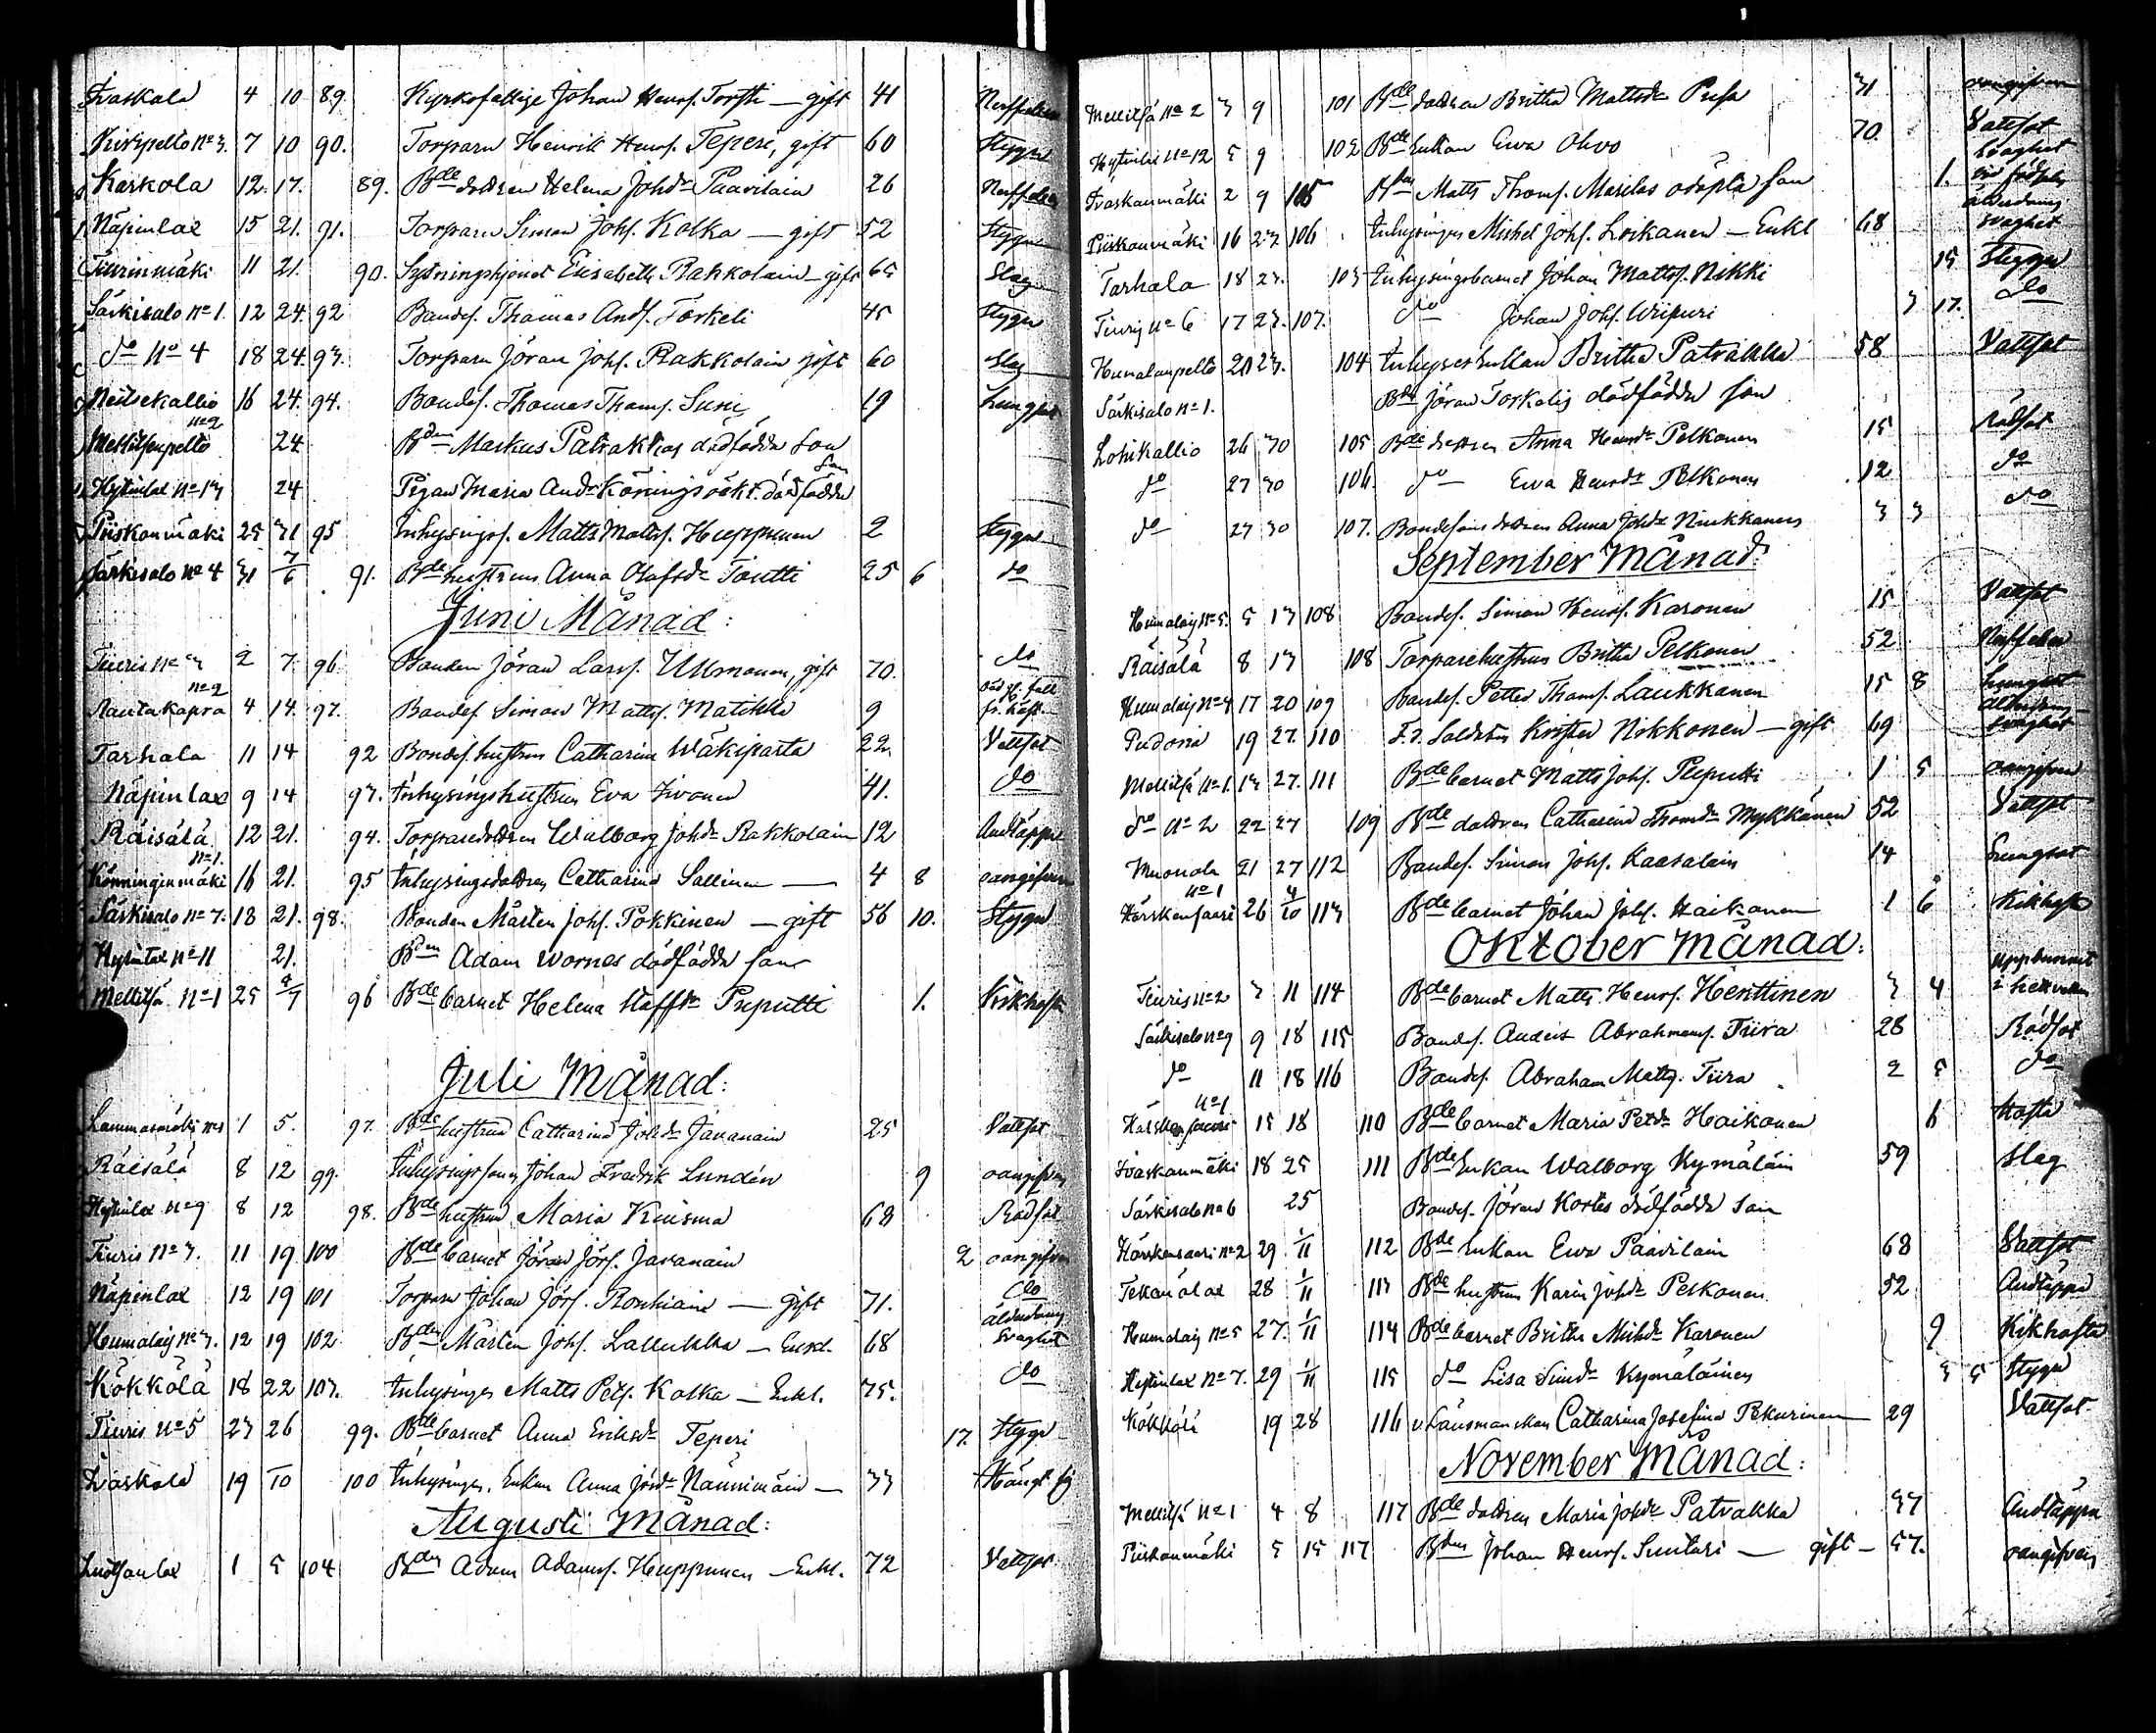 Ivaskala 4 10 89. Kyrkofattige Johan Henrs. Torsti — gift 41
Kiripelto No 3. 7 10 90. Torparn Henrik Henrs. Teperi, gift 60 Stygn
Karkola 12. 17. 89. Bde dottren Helena Johsdr Paavilain 26
Näpinlax 15 21. 91. Torparn Simon Johs. Kolka — gift 52 Stygn
Tiurinmäki 11 21. 90. Sytningshjonet Elisabeth Rahkolain — gift 65 Slag
Särkisalo No 1. 12 24. 92 Bondes. Thomas Ands. Törkeli 45 Stygn
do No 4 18 24. 93. Torparn Jöran Johs. Rakkolain gift 60 Slag
Neitsekallio 16 24. 94. Bondes. Thomas Thoms. Suni 19 Lungsot
No 2
24. Bdn Markus Patrakkas dödfödde son
Hytinlax No 13 24 Pigan Maria Andsdr Könings oäkt. dödfödde son
Piiskonmäki 25 31 95 Inhysings. Matts Matts. Huppunen 2 Stygn
Särkisalo No 4 31 7/6 91. Bde hustrun Anna Olafsdr Toutti 25 6 do
Juni Månad:
Tiuris No 3 2 7. 96. Bonden Jöran Larss. Ukkmonen, gift 70. do
No 2
Rautakapra 4 14. 97. Bondes. Simon Matts. Matikka 9
Tarhala 11 14 92 Bondes. hustrun Catharina Wäkiparta 22 Vattsot
Näpinlax 9 14 93. Inhysingshustrun Eva Iivonen 41. do
Räisälä 12 21. 94. Torparedottren Walborg Johsdr Rakkolain 12 Andtäppa
No 1.
Könninginmäki 16 21. 95 Inhysingsdottren Catharina Sallinen — 4 8 oangifven
Särkisalo No 7. 18 21. 98. Bonden Mårten Johs. Pokkinen — gift 56 10. Stygn
Hytinlax No 11 21. Bdn Adam Wornas dödfödde son
Mellilä No 1 25 5/7 96 Bde barnet Helena Staffsdr Puputti 1. Kikhosta
Juli Månad:
1 5. 97. Bde hustrun Catharina Johsdr Javanain 25 Vattsot
Räisälä 8 12 99. Inhysings sonen Johan Fredrik Lundén 9 oangifven
Hytinlax No 9 8 12 98. Bde hustrun Maria Kuisma 68 Rödsot
Tiuris No 3. 11 19. 100 Bde barnet Jöran Jörs. Javanain 2 oangifven
Näpinlax 12 19 101 Torparn Johan Jörs. Ronkiain — gift 71. do
Humalaij No 3. 12 19 102. Bdn Mårten Johs. Lallukka — Enkl. 68 ålderdoms svaghet
Kökkölä 18 22 103. Inhysinges Matts Pets. Kolka — Enkl. 75. do
Tiuris No 5 23 26 99. Bde barnet Anna Eriksdr Teperi 17. Stygn
Ivaskala 19 10 100 Inhysinges. Enkan Anna Jörsdr Nännimäin — 33 Hängt sig
Augusti Månad:
1 5 104 Bdn Adam Adams. Huppunen — Enkl. 72 Vattsot
Mellilä No 2 3 9 101 Bde dottren Britha Mattsdr Pusa 31 oangifven
Hytinlax No 12 5 9 102 Bde Enkan Ewa Ohvo 70. Vattsot
Ivaskanmäki 2 9 105 Bdns Matts Thoms. Marilas odöpta son 1.
Piiskonmäki 16 23 106 Inhysinges Michel Johs. Loikanen — Enkl 68 ålderdoms svaghet
Tarhala 18 23. 103 Inhysingsbarnet Johan Matts. Nikki 15 Stygn
Tiurij No 6 17 23. 107. do Johan Johs. Wiipuri 3 17. do
Humalanpelto 20 23. 104 Inhyses Enkan Britha Patrakka 58 Vattsot
Särkisalo No 1. Bdn Jöran Torkelis dödfödde son
Lohikallio 26 30 105 Bde dottren Anna Henrsdr Pelkonen 15 Rödsot
do 27 30 106. do Ewa Henrsdr Pelkonen 12 do
do 27 30 107. Bondesons dottren Anna Johsdr Niukkanen 3 3 do
September Månad:
Humalaij No 5. 5 13 108 Bondes. Simon Henrs. Karonen 15 Vattsot
Räisälä 8 13 108 Torparehustrun Britha Pelkonen 52
Humalaij No 4 17 20 109 Bondes. Petter Thoms. Laukkanen 15 8 Lungsot
Pudoria 19 27. 110 F.d. Soldaten Krister Nikkonen — gift 69 ålderdoms svaghet
Mellilä No 1. 13 27. 111 Bde barnet Matts Johs. Puputti 1 5 oangifven
do No 2 22 27 109 Bde dottren Catharina Thomsdr Mykkänen 52 Vattsot
Muonola 21 27 112 Bondes. Simon Johs. Kaasalain 14 Lungsot
No 1
Hörskensaari 26 4/10 113 Bde barnet Johan Johs. Haikonen 1 6 Kikhosta
Oktober Månad:
Tiuris No 2 3 11 114 Bde barnet Matts Henrs. Henttinen 3 4 uppbrunnit i hett vatten
Särkisalo No 9 9 18 115 Bondes. Anders Abrahams. Tiira 28 Rödsot
do 11 18 116 Bondes. Abraham Matts. Tiira 2 5 do
No 1
Hörskensaari 15 18 110 Bde barnet Maria Petsdr Haikonen 6 hosta
Ivaskanmäki 18 25 111 Bde Enkan Walborg Kymäläin 59 Slag
Särkisalo No 6 25 Bondes. Jöran Kortes dödfödde son
Hörskensaari No 2 29 1/11 112 Bde Enkan Ewa Paavilain 68 Vattsot
28 1/11 113 Bde hustrun Karin Johsdr Peskonen 52. Andtäppa
Humalaij No 5 27. 1/11 114 Bde barnet Britha Michsdr Karonen 9 Kikhosta
Hytinlax No 7. 29 1/11 115 do Lisa Simsdr Kymäläinen 3 5 Stygn
Kökkölä 19 28 116 v. Länsmanskan Catharina Josefina Pekurinen — 29 Vattsot
November Månad:
Mellilä No 1 4 8 117 Bde dottren Maria Johsdr Patrakka 37 Andtäppa
Piiskonmäki 5 15 117 Bdn Johan Henrs. Suutari — gift — 57. oangifven